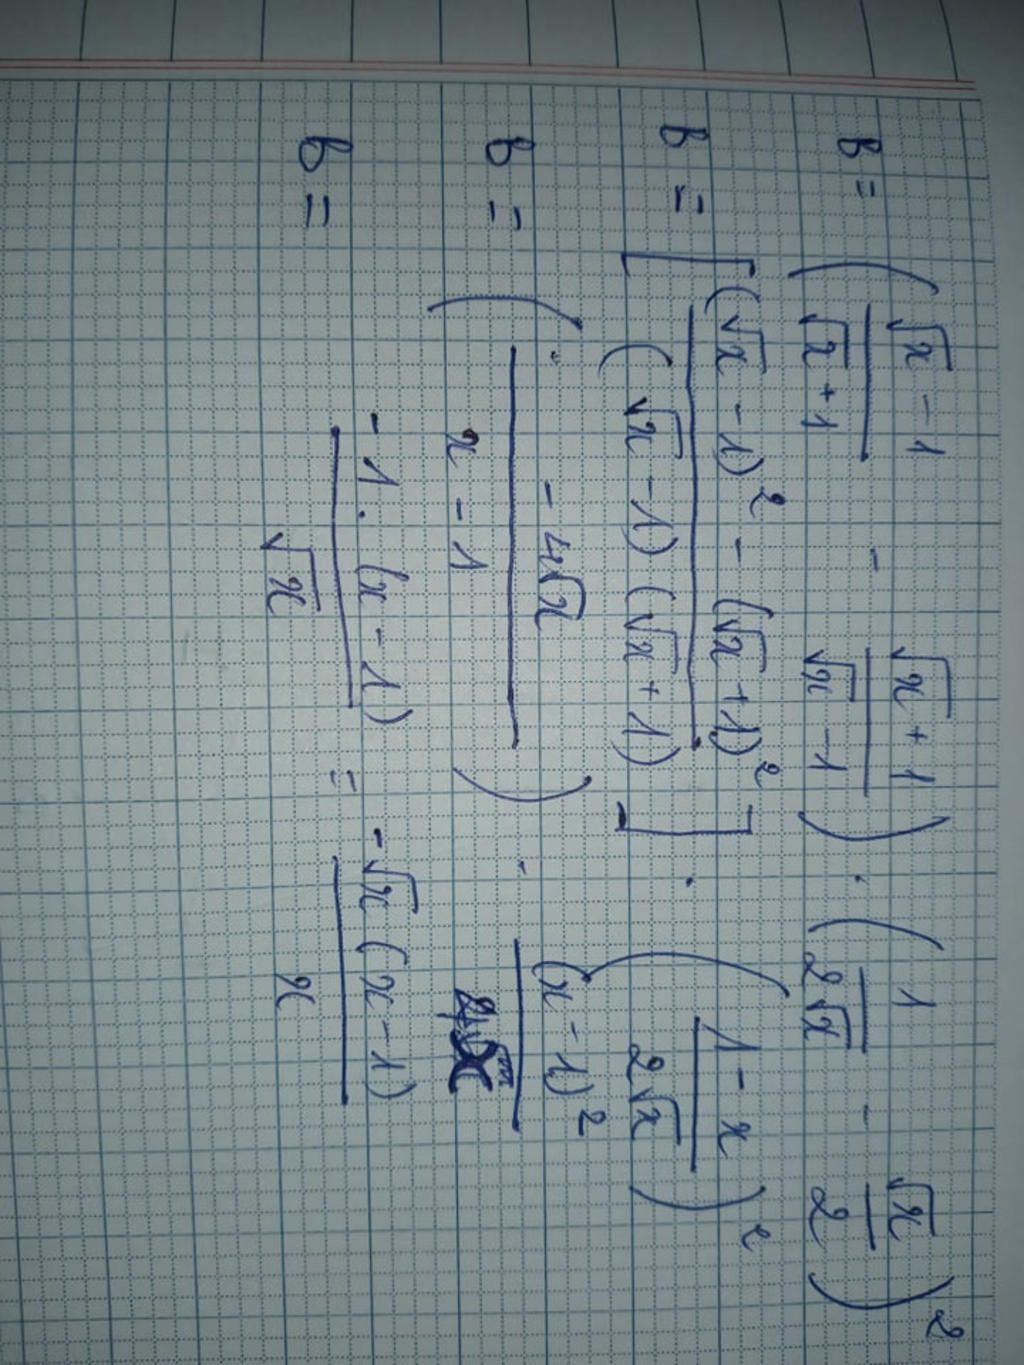 B = ( (√x - 1)/(√x + 1) - (√x + 1)/(√x - 1) ) . ( 1/(2√x) - √x/2 )²
B = [ ((√x - 1)² - (√x + 1)²)/((√x - 1)(√x + 1)) ] . ( (1 - x)/(2√x) )²
B = ( (-4√x)/(x - 1) ) . (x - 1)²/4x
B = (-1 . (x - 1))/√x = (-√x (x - 1))/x